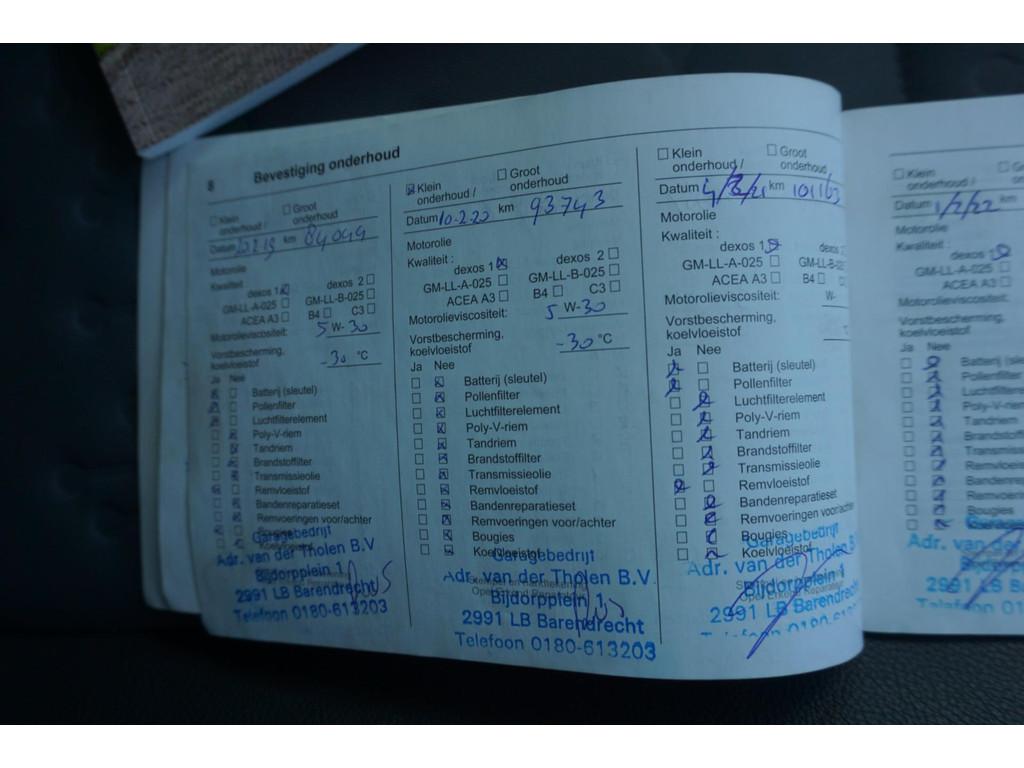 8 Bevestiging onderhoud
Klein onderhoud / Groot onderhoud
Datum km 84049
Motorolie
Kwaliteit :
dexos 1 dexos 2
GM-LL-A-025 GM-LL-B-025
ACEA A3 B4 C3
Motorolieviscositeit: 5 W- 30
Vorstbescherming, koelvloeistof -30 °C
Ja Nee
Batterij (sleutel)
Pollenfilter
Luchtfilterelement
Poly-V-riem
Tandriem
Brandstoffilter
Transmissieolie
Remvloeistof
Bandenreparatieset
Remvoeringen voor/achter
Bougies
Koelvloeistof
Garagebedrijf
Adr. van der Tholen B.V
Bijdorpplein 1
2991 LB Barendrecht
Telefoon 0180-613203
Klein onderhoud / Groot onderhoud
Datum 10-2-20 km 93743
Motorolie
Kwaliteit :
dexos 1 dexos 2
GM-LL-A-025 GM-LL-B-025
ACEA A3 B4 C3
Motorolieviscositeit: 5 W-30
Vorstbescherming, koelvloeistof -30 °C
Ja Nee
Batterij (sleutel)
Pollenfilter
Luchtfilterelement
Poly-V-riem
Tandriem
Brandstoffilter
Transmissieolie
Remvloeistof
Bandenreparatieset
Remvoeringen voor/achter
Bougies
Koelvloeistof
Garagebedrijf
Adr. van der Tholen B.V.
Bijdorpplein 1
2991 LB Barendrecht
Telefoon 0180-613203
Klein onderhoud / Groot onderhoud
Datum km 101163
Motorolie
Kwaliteit :
dexos 1 dexos 2
GM-LL-A-025 GM-LL-B-
ACEA A3 B4
Motorolieviscositeit: W-
Vorstbescherming, koelvloeistof
Ja Nee
Batterij (sleutel)
Pollenfilter
Luchtfilterelement
Poly-V-riem
Tandriem
Brandstoffilter
Transmissieolie
Remvloeistof
Bandenreparatieset
Remvoeringen voor/achter
Bougies
Koelvloeistof
Garagebedrijf
Adr. van der Tholen B
Bijdorpplein 1
2991 LB Barendrecht
Telefoon 0180-613
Klein onderhoud /
Datum 1/2/22 km
Motorolie
Kwaliteit :
dexos 1
GM-LL-A-025
ACEA A3
Motorolieviscositeit:
Vorstbescherming, koelvloeistof
Ja Nee
Batterij (s
Pollenfilter
Luchtfilter
Poly-V-rie
Tandriem
Brandstoff
Transmiss
Remvloeis
Bandenrep
Remvoerin
Bougies
Adr. van de
2991 LB